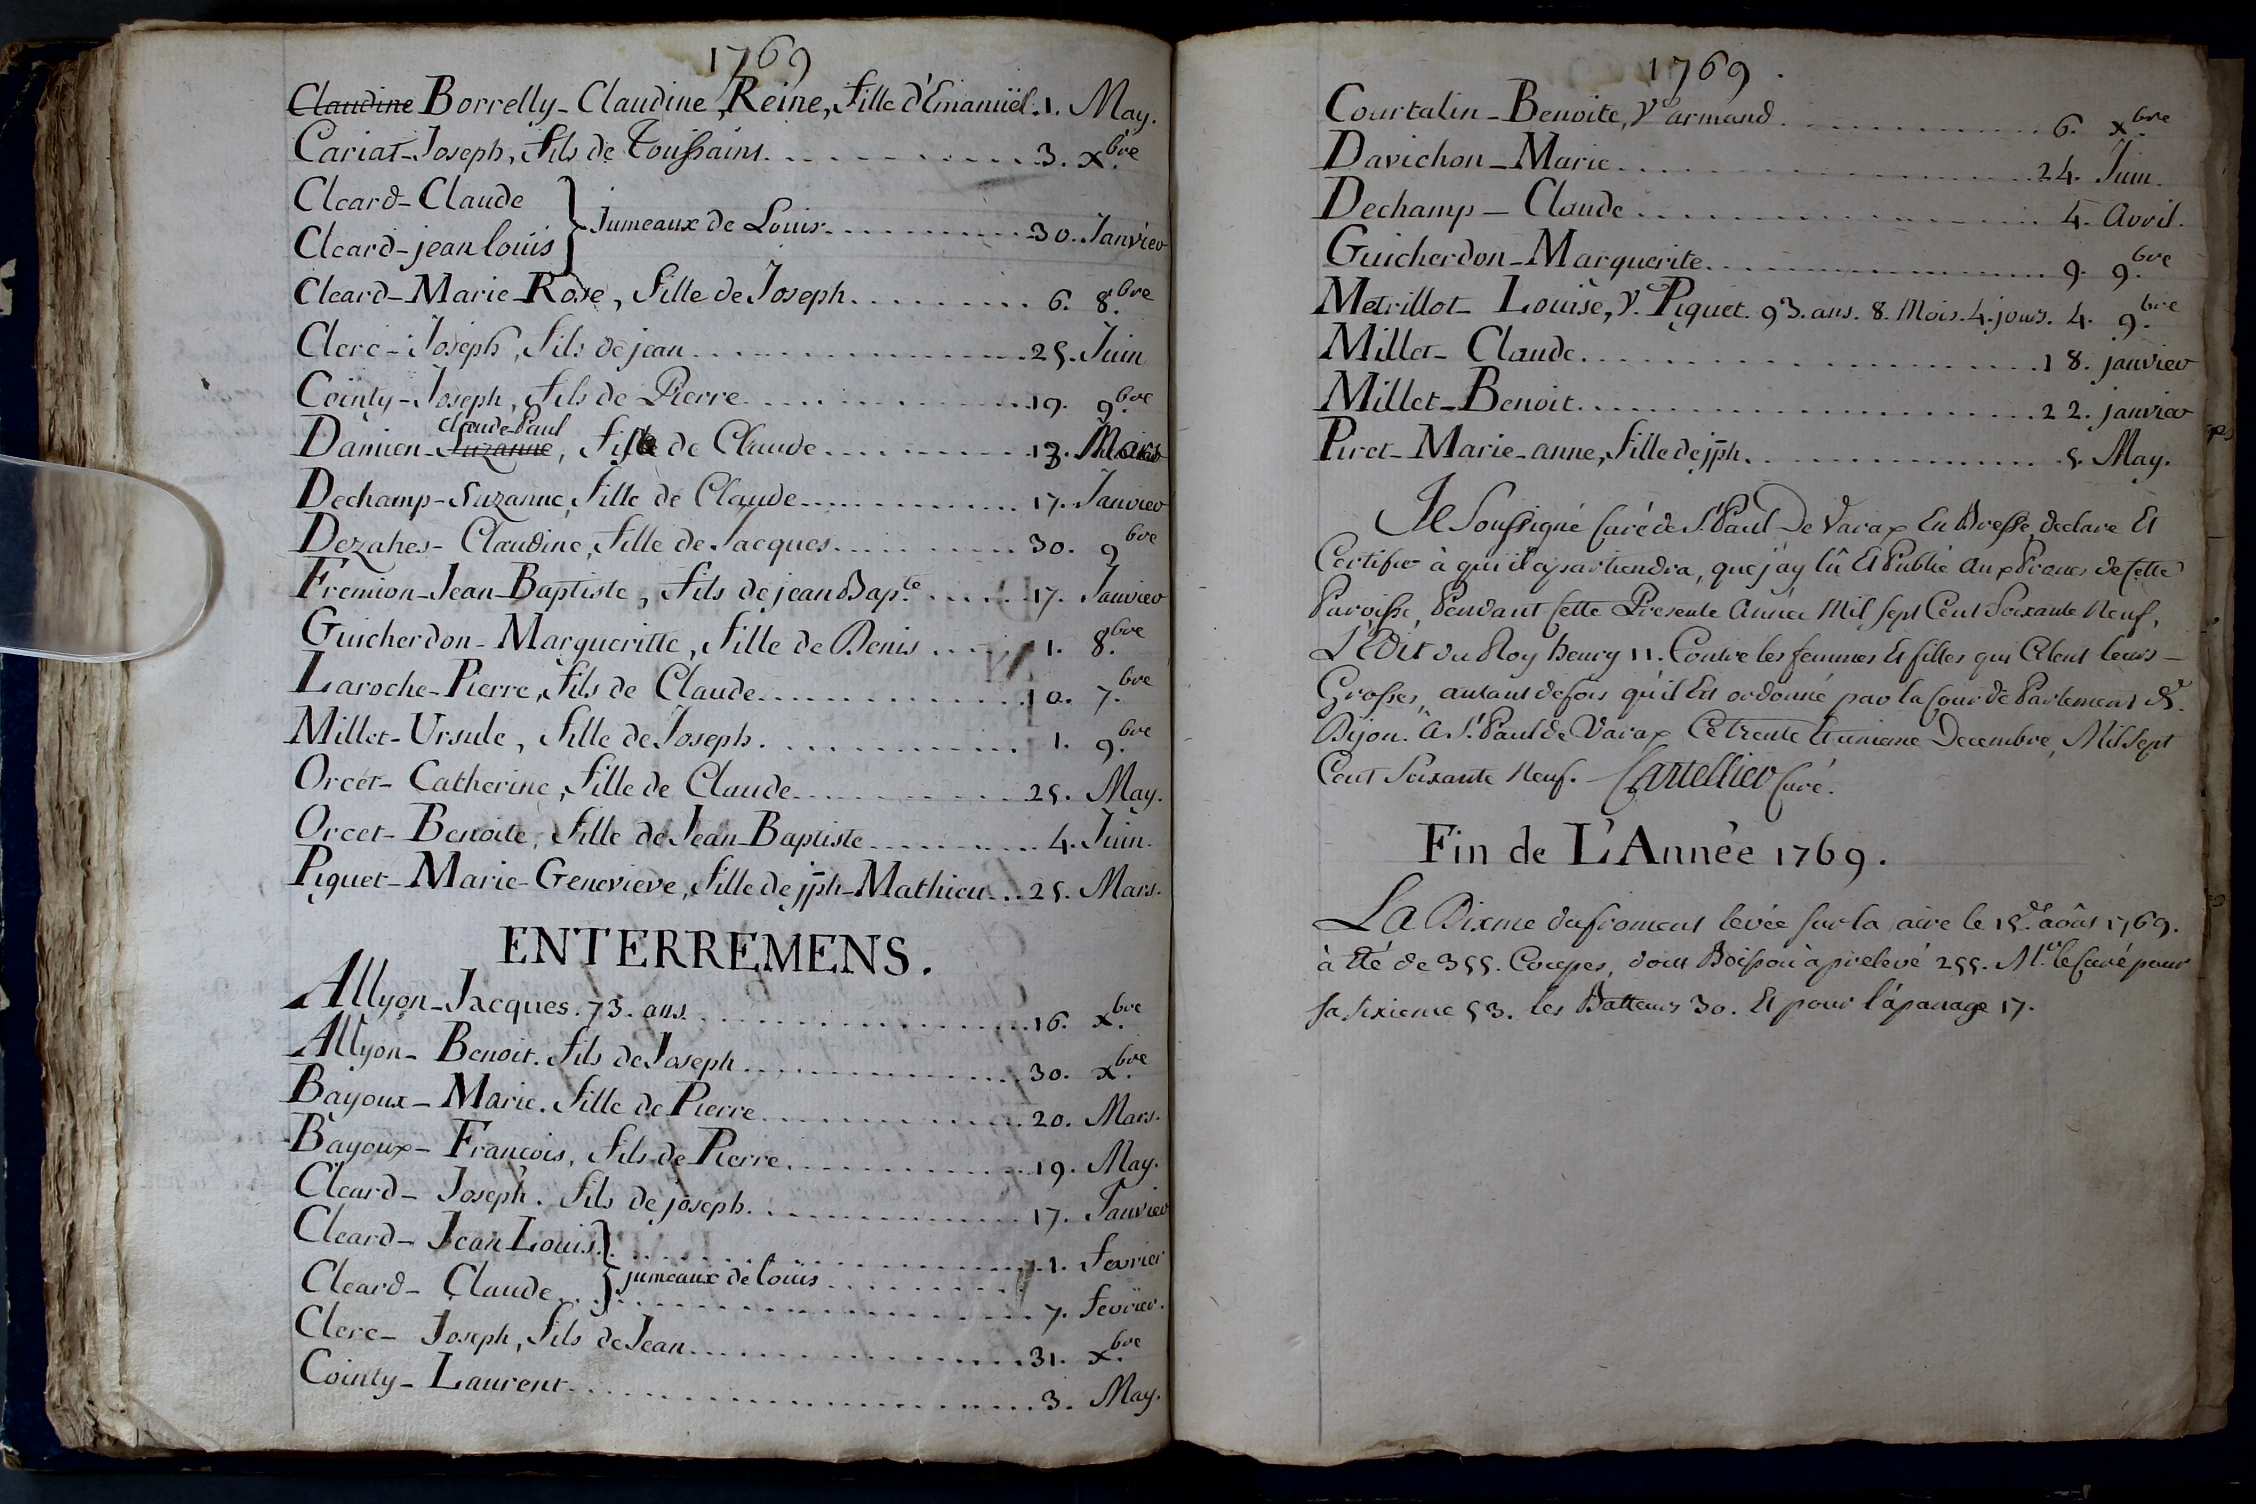 1769
Claudine Borrelly - Claudine Reine, fille d'Emanüel. 1. May.
Cariat - Joseph, fils de Toussaint. . . . 3. xbre.
Cleard - Claude
Jumeaux de Louis. . . . 30. Janvier
Cleard - jean loüis
Cleard - Marie - Rose, fille de Joseph. . . . 6. 8.bre
Clerc - Joseph, fils de jean . . . 25. Juin
Cointy - Joseph, fils de Pierre. . . . 19. 9.bre
claude-Paul
Damien - Suzanne, fils de Claude . . . 13. Mars
Dechamp - Suzanne, fille de Claude . . . 17. Janvier
Dezahes - Claudine, fille de Jacques. . . . 30. 9bre
Fremion - Jean - Baptiste, fils de jean Bapte. . . . 17. Janvier
Guicherdon - Margueritte, fille de Denis . . . 1. 8.bre
Laroche - Pierre, fils de Claude. . . . 10. 7.bre
Millet - Ursule, fille de Joseph. . . . 1. 9.bre
Orcet - Catherine, fille de Claude. . . . 25. May.
Orcet - Benoite, fille de Jean Baptiste . . . 4. Juin.
Piquet - Marie - Genevieve, fille de jph - Mathieu. . . 25. Mars.
ENTERREMENS.
Allyon - Jacques. 73. ans. . . . 16. x.bre
Allyon - Benoit. fils de Joseph . . . 30. x.bre
Bayoux - Marie. fille de Pierre . . . 20. Mars.
Bayoux - François, fils de Pierre. . . . 19. May.
Cleard - Joseph. fils de joseph. . . . 17. Janvier
Cleard - Jean Louis. . . . 1. fevrier
jumeaux de louis . . .
Cleard - Claude. . . . 7. fevrier.
Clerc - Joseph, fils de Jean. . . . 31. x.bre
Cointy - Laurent. . . . 3. May.
1769.
Courtalin - Benoite, Ve armand. . . . 6. x.bre
Davichon - Marie . . . 24. Juin.
Dechamp - Claude . . . 4. avril.
Guicherdon - Marguerite. . . . 9. 9.bre
Metrillot - Louise, V. Piquet. 93. ans. 8. Mois. 4. jours. 4. 9.bre
Millet - Claude. . . . 18. janvier
Millet - Benoit. . . . 22. janvier
Piret - Marie - anne, fille de jph. . . . 5. May.
Je Soussigné Curé de St. Paul De Varax En Bresse, declare Et
Certifie à qui il apartiendra, que j'ay lû Et Publié aux Prones de Cette
Paroisse, Pendant Cette Presente Année Mil Sept Cent Soixante Neuf,
L'Edit du Roy henry 11. Contre les femmes Et filles qui Celent leurs
Grosses, autant de fois qu'il Est ordonné par la Cour de Parlement de
Dijon. A St. Paul de Varax Ce trente Et unieme Decembre, Mil Sept
Cent Soixante Neuf. Cartellier Curé.
Fin de L'Année 1769.
La Dixme du froment levée sur la aire le 15.e août 1769.
à Eté de 355. Coupes, dont Boisson à prelevé 255. Mr. le Curé pour
sa sixieme 53. les Batteurs 30. Et pour l'apanage 17.